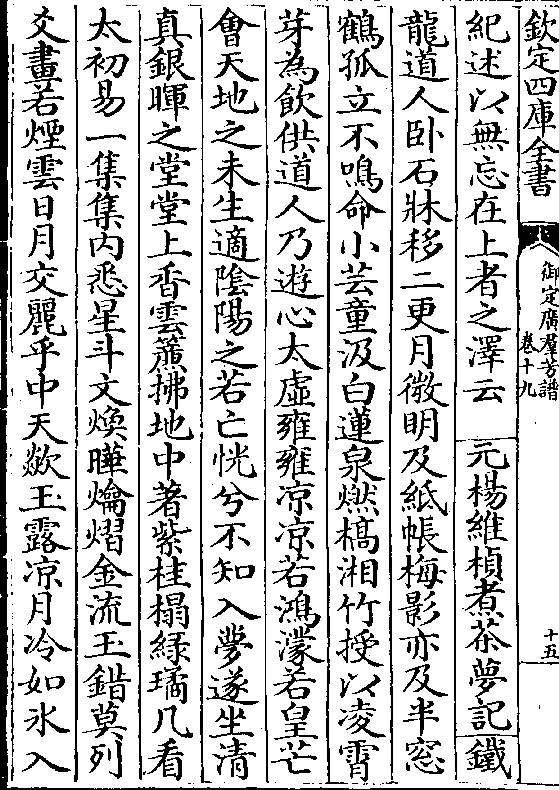 欽定四庫全書
御定廣羣芳譜
卷十九
十五
紀述以無忘在上者之澤云 元楊維楨煮茶夢記 鐵
龍道人卧石牀移二更月微明及紙帳梅影亦及半窓
鶴孤立不鳴命小芸童汲白蓮泉燃槁湘竹授以凌霄
芽為飲供道人乃遊心太虛雍雍凉凉若鴻濛若皇芒
會天地之未生適陰陽之若亡恍兮不知入夢遂坐清
真銀暉之堂堂上香雲簾拂地中著紫桂榻綠璚几看
太初易一集集内悉星斗文煥曄爚熠金流玉錯莫列
爻畫若煙雲日月交麗乎中天歘玉露凉月冷如氷入